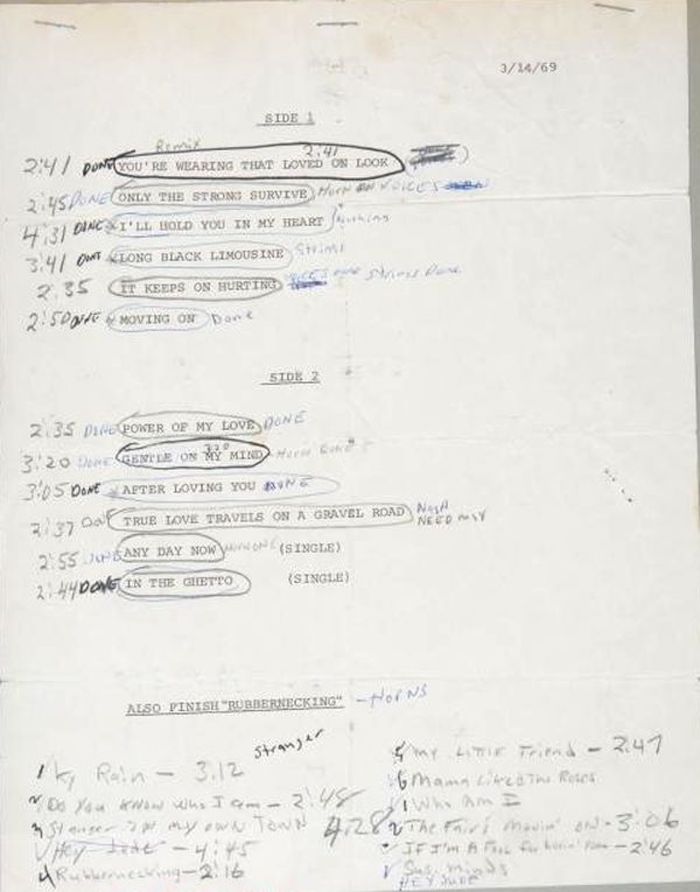 3/14/69
SIDE 1
Remix 2:41
2:41 DONE YOU'RE WEARING THAT LOVED ON LOOK
2:45 DONE ONLY THE STRONG SURVIVE HORN VOICES
4:31 DONE I'LL HOLD YOU IN MY HEART
3:41 DONE LONG BLACK LIMOUSINE
2:35 IT KEEPS ON HURTING STRINGS DONE
2:50 DONE MOVING ON Done
SIDE 2
2:35 DONE POWER OF MY LOVE DONE
3:20
3:20 DONE GENTLE ON MY MIND HORN DONE
3:05 DONE AFTER LOVING YOU DONE
2:37 TRUE LOVE TRAVELS ON A GRAVEL ROAD
NEED MIX
2:55 DONE ANY DAY NOW (SINGLE)
2:44 DONE IN THE GHETTO (SINGLE)
ALSO FINISH "RUBBERNECKING" - HORNS
1 Ky Rain - 3.12 Stranger
2 Do You Know Who I Am - 2:48
3 Stranger In My Own Town 4:28
Hey Jude - 4:45
4 Rubbernecking - 2:16
5 My Little Friend - 2:47
6 Mama Liked The Roses
1 Who Am I
2 The Fair's Movin' On - 3:06
If I'm A Fool For Lovin' You - 2:46
Sus. minds
HEY JUDE